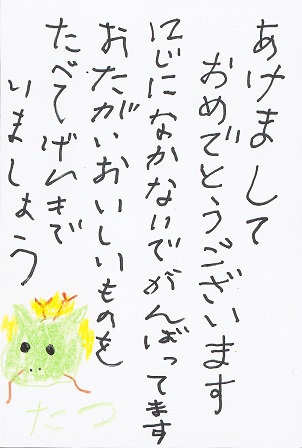 あけまして
おめでとうございます
にじになかないでがんばってます
おたがいおいしいものを
たべてげんきで
いましょう
たつ